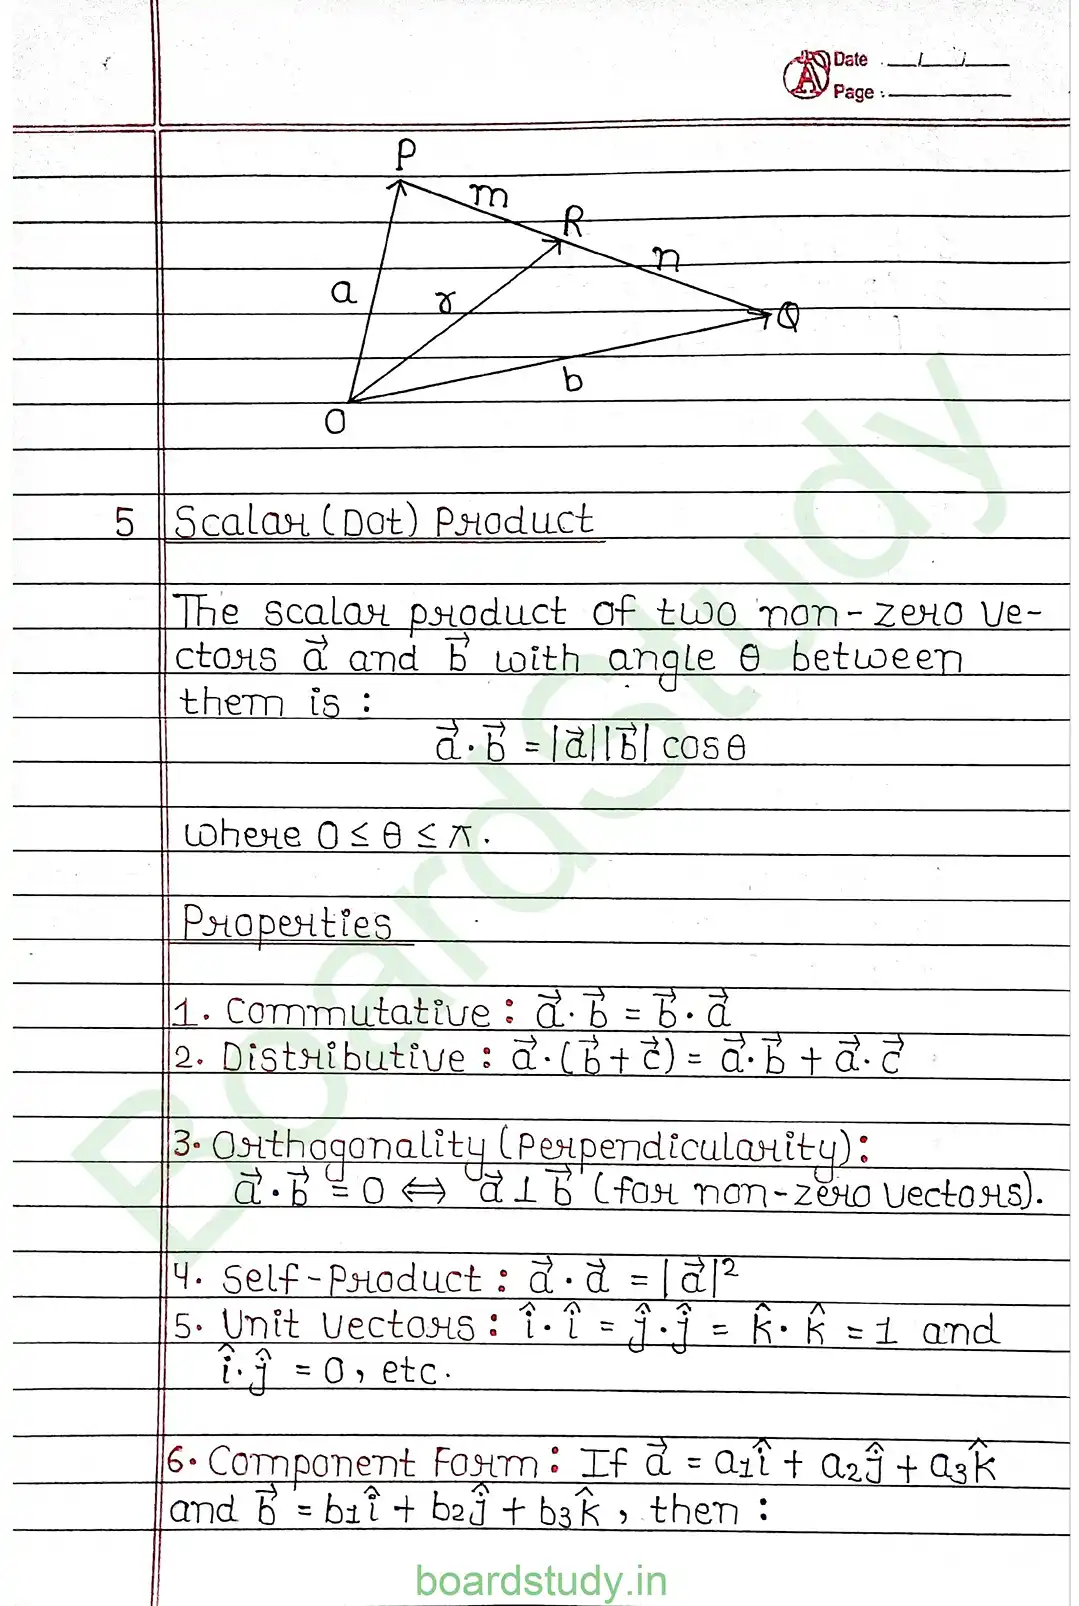 Date : __/__/__
Page : ____
P
m
R
n
a
r
Q
b
O
5 Scalar (Dot) Product
The scalar product of two non-zero ve-
ctors a⃗ and b⃗ with angle θ between
them is :
a⃗ · b⃗ = |a⃗||b⃗| cosθ
where 0 ≤ θ ≤ π.
Properties
1. Commutative : a⃗ · b⃗ = b⃗ · a⃗
2. Distributive : a⃗ · (b⃗ + c⃗) = a⃗ · b⃗ + a⃗ · c⃗
3. Orthogonality (Perpendicularity) :
a⃗ · b⃗ = 0 ⟺ a⃗ ⊥ b⃗ (for non-zero vectors).
4. Self-Product : a⃗ · a⃗ = |a⃗|²
5. Unit Vectors : î · î = ĵ · ĵ = k̂ · k̂ = 1 and
î · ĵ = 0, etc.
6. Component Form : If a⃗ = a₁î + a₂ĵ + a₃k̂
and b⃗ = b₁î + b₂ĵ + b₃k̂ , then :
BoardStudy
boardstudy.in